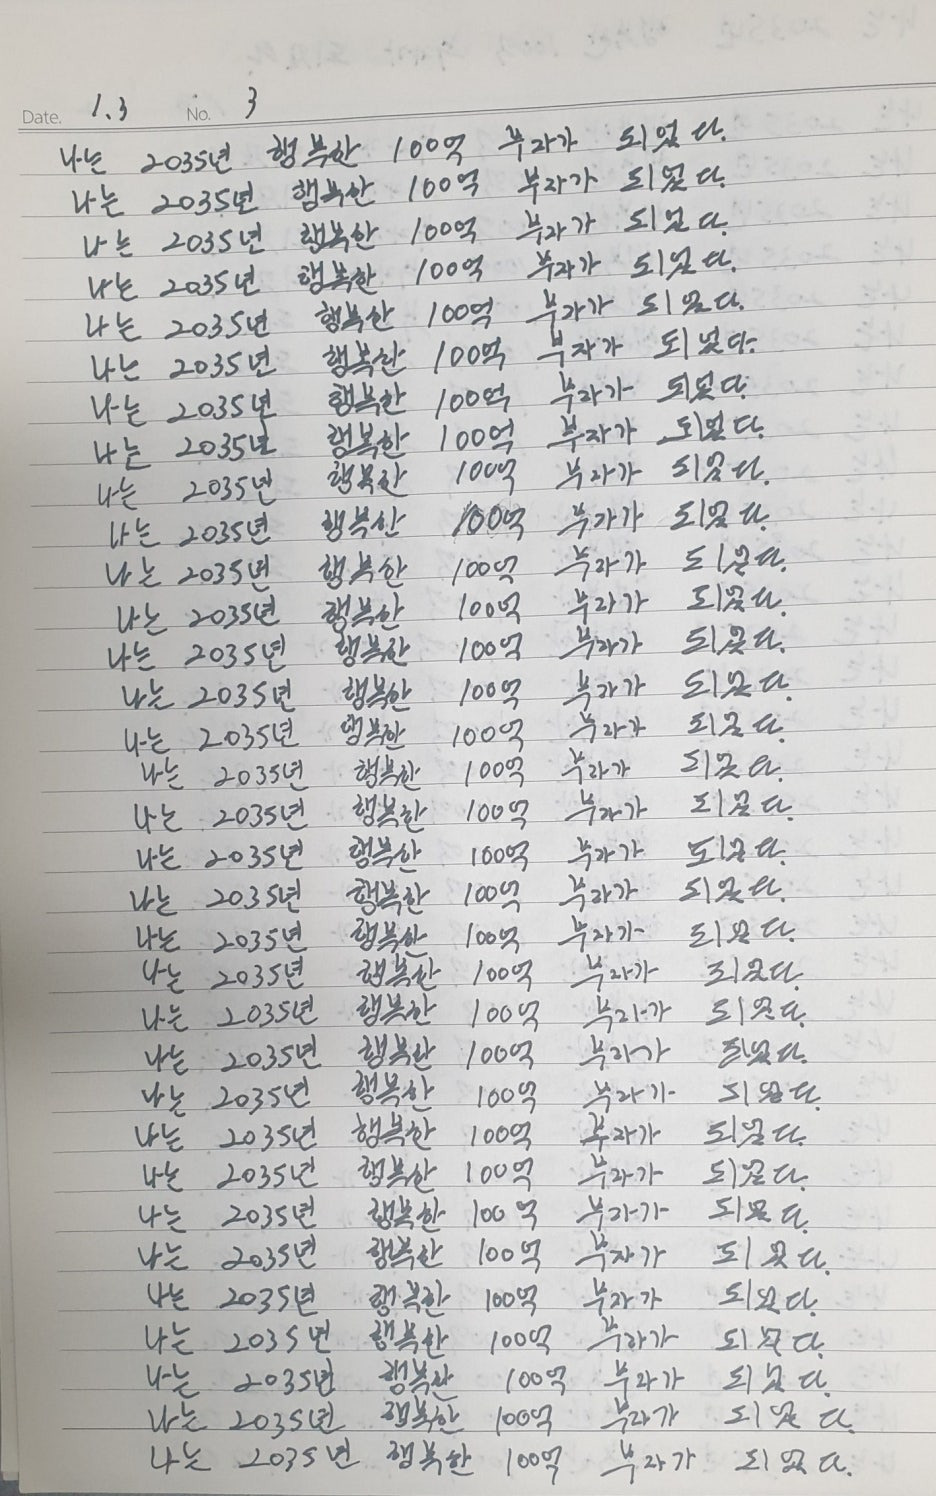 Date. 1.3 No. 3
나는 2035년 행복한 100억 부자가 되었다.
나는 2035년 행복한 100억 부자가 되었다.
나는 2035년 행복한 100억 부자가 되었다.
나는 2035년 행복한 100억 부자가 되었다.
나는 2035년 행복한 100억 부자가 되었다.
나는 2035년 행복한 100억 부자가 되었다.
나는 2035년 행복한 100억 부자가 되었다.
나는 2035년 행복한 100억 부자가 되었다.
나는 2035년 행복한 100억 부자가 되었다.
나는 2035년 행복한 100억 부자가 되었다.
나는 2035년 행복한 100억 부자가 되었다.
나는 2035년 행복한 100억 부자가 되었다.
나는 2035년 행복한 100억 부자가 되었다.
나는 2035년 행복한 100억 부자가 되었다.
나는 2035년 행복한 100억 부자가 되었다.
나는 2035년 행복한 100억 부자가 되었다.
나는 2035년 행복한 100억 부자가 되었다.
나는 2035년 행복한 100억 부자가 되었다.
나는 2035년 행복한 100억 부자가 되었다.
나는 2035년 행복한 100억 부자가 되었다.
나는 2035년 행복한 100억 부자가 되었다.
나는 2035년 행복한 100억 부자가 되었다.
나는 2035년 행복한 100억 부자가 되었다.
나는 2035년 행복한 100억 부자가 되었다.
나는 2035년 행복한 100억 부자가 되었다.
나는 2035년 행복한 100억 부자가 되었다.
나는 2035년 행복한 100억 부자가 되었다.
나는 2035년 행복한 100억 부자가 되었다.
나는 2035년 행복한 100억 부자가 되었다.
나는 2035년 행복한 100억 부자가 되었다.
나는 2035년 행복한 100억 부자가 되었다.
나는 2035년 행복한 100억 부자가 되었다.
나는 2035년 행복한 100억 부자가 되었다.